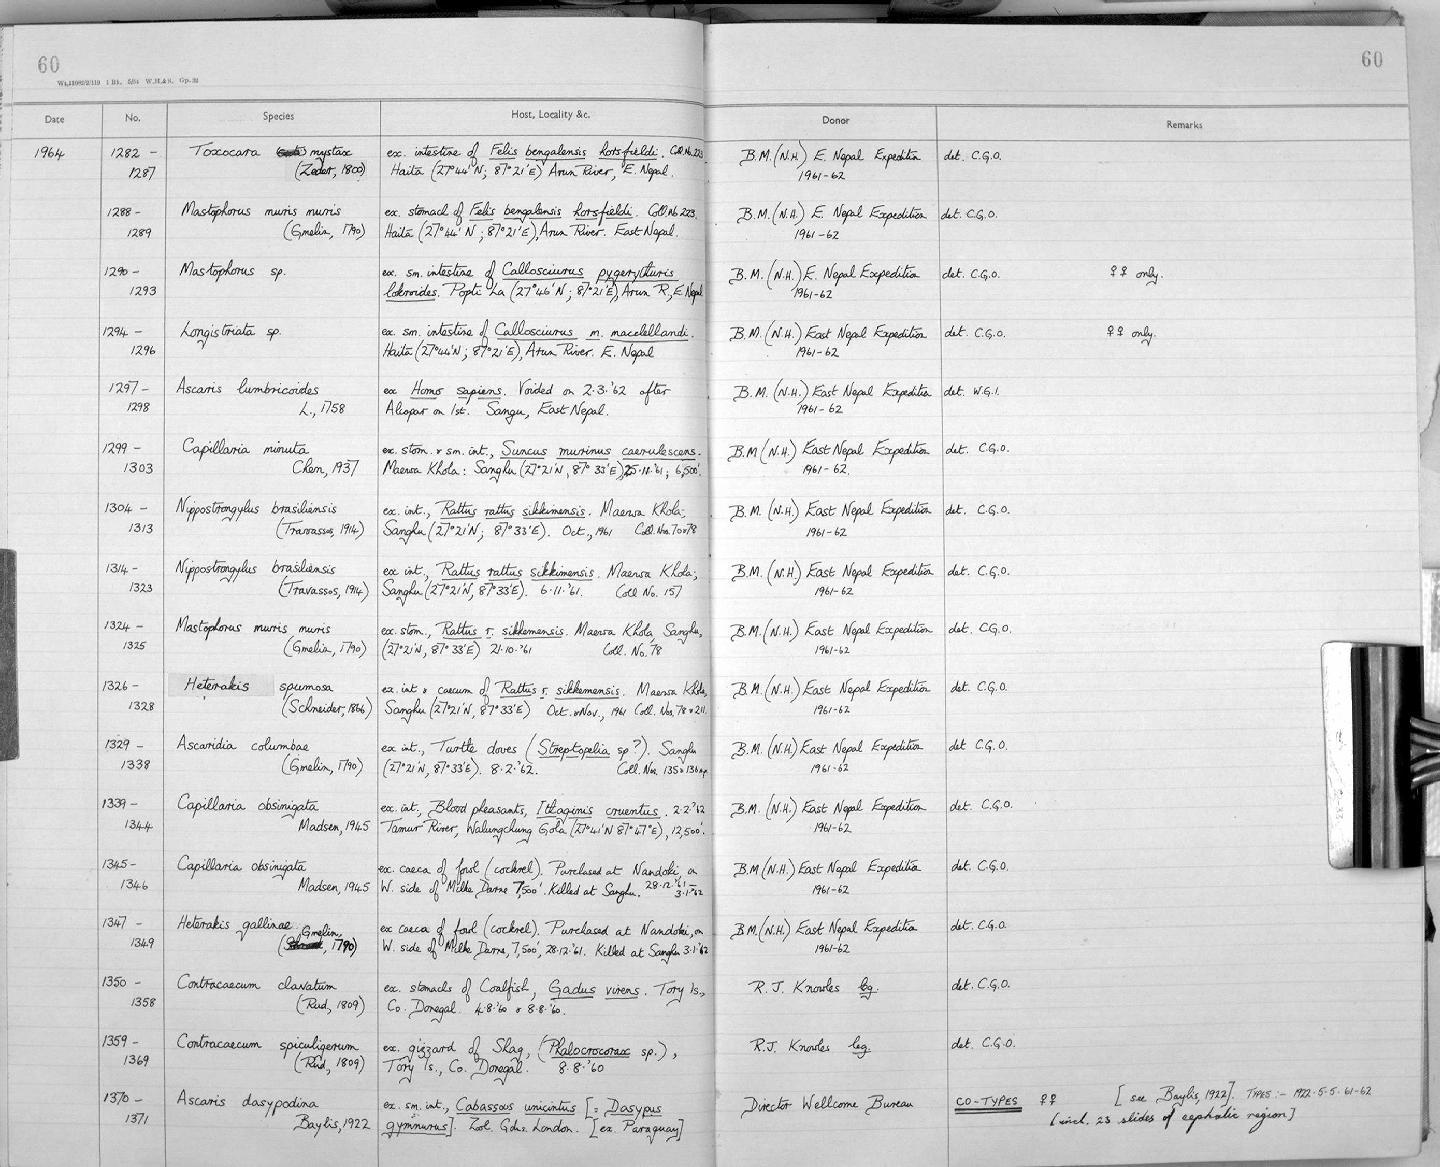 60
60
Wt.11982/2/119 1 Bk. 5/54 W.H.&S. Gp.32
Date No. Species Host, Locality &c. Donor Remarks
1964 1282 - Toxocara mystax ex. intestine of Felis bengalensis horsfieldi. Coll. No. 223 B.M.(N.H.) E. Nepal Expedition det. C.G.O.
1287 (Zeder, 1800) Haita (27°44'N; 87°21'E) Arun River, E. Nepal. 1961-62
1288 - Mastophorus muris muris ex. stomach of Felis bengalensis horsfieldi. Coll. No. 223. B.M.(N.H.) E. Nepal Expedition det. C.G.O.
1289 (Gmelin, 1790) Haita (27°44'N; 87°21'E), Arun River. East Nepal. 1961-62
1290 - Mastophorus sp. ex. sm. intestine of Callosciurus pygerythuris B.M.(N.H.) E. Nepal Expedition det. C.G.O. ♀♀ only.
1293 lokroides. Popti La (27°46'N; 87°21'E), Arun R, E. Nepal 1961-62
1294 - Longistriata sp. ex. sm. intestine of Callosciurus m. macclellandi. B.M.(N.H.) East Nepal Expedition det. C.G.O. ♀♀ only.
1296 Haita (27°44'N; 87°21'E), Arun River. E. Nepal 1961-62
1297 - Ascaris lumbricoides ex Homo sapiens. Voided on 2.3.'62 after B.M.(N.H.) East Nepal Expedition det. W.G.I.
1298 L., 1758 Aliopar on 1st. Sangu, East Nepal. 1961-62
1299 - Capillaria minuta ex. stom. & sm. int., Suncus murinus caerulescens. B.M(N.H.) East Nepal Expedition det. C.G.O.
1303 Chen, 1937 Maewa Khola: Sanghu (27°21'N, 87°33'E), 25.11.'61; 6,500'. 1961-62.
1304 - Nippostrongylus brasiliensis ex. int., Rattus rattus sikkimensis. Maewa Khola; B.M.(N.H.) East Nepal Expedition det. C.G.O.
1313 (Travassos, 1914) Sanghu (27°21'N; 87°33'E). Oct., 1961 Coll. Nos. 70 & 78 1961-62
1314 - Nippostrongylus brasiliensis ex int., Rattus rattus sikkimensis. Maewa Khola; B.M.(N.H) East Nepal Expedition det. C.G.O.
1323 (Travassos, 1914) Sanghu (27°21'N, 87°33'E). 6.11.'61. Coll. No. 157 1961-62
1324 - Mastophorus muris muris ex. stom., Rattus r. sikkemensis. Maewa Khola, Sanghu, B.M.(N.H.) East Nepal Expedition det. C.G.O.
1325 (Gmelin, 1790) (27°21'N, 87°33'E) 21.10.'61 Coll. No. 78 1961-62
1326 - Heterakis spumosa ex. int & caecum of Rattus r. sikkemensis. Maewa Khola, B.M.(N.H.) East Nepal Expedition det. C.G.O.
1328 (Schneider, 1866) Sanghu (27°21'N, 87°33'E) Oct. & Nov., 1961 Coll. Nos. 78 & 211. 1961-62
1329 - Ascaridia columbae ex int., Turtle doves (Streptopelia sp?). Sanghu B.M.(N.H.) East Nepal Expedition det C.G.O.
1338 (Gmelin, 1790) (27°21'N, 87°33'E). 8.2.'62. Coll. Nos. 135 & 136 1961-62
1339 - Capillaria obsinigata ex. int., Blood pheasants, Ithaginis cruentus. 2.2.'62 B.M.(N.H.) East Nepal Expedition det. C.G.O.
1344 Madsen, 1945 Tamur River, Walungchung Gola (27°41'N 87°47'E), 12,500'. 1961-62
1345 - Capillaria obsinigata ex. caeca of fowl (cockrel). Purchased at Nandoki, on B.M(N.H.) East Nepal Expedition det. C.G.O.
1346 Madsen, 1945 W. side of Milke Darne 7,500'. Killed at Sanghu. 28.12.'61 - 3.1.'62 1961-62
1347 - Heterakis gallinae Gmelin, ex caeca of fowl (cockrel). Purchased at Nandoki, on B.M.(N.H) East Nepal Expedition det. C.G.O.
1349 1790) W. side of Milke Darne, 7,500', 28.12.'61. Killed at Sanghu 3.1.'62 1961-62
1350 - Contracaecum clavatum ex. stomachs of Coalfish, Gadus virens. Tory Is., R.J. Knowles leg. det. C.G.O.
1358 (Rud, 1809) Co. Donegal. 4.8.'60 & 8.8.'60.
1359 - Contracaecum spiculigerum ex. gizzard of Shag, (Phalocrocorax sp.), R.J. Knowles leg. det. C.G.O.
1369 (Rud, 1809) Tory Is., Co. Donegal. 8.8.'60
1370 - Ascaris dasypodina ex. sm. int., Cabassous unicintus [= Dasypus Director Wellcome Bureau CO-TYPES ♀♀ [see Baylis, 1922]. TYPES:- 1922.5.5.61-62
1371 Baylis, 1922 gymnurus]. Zool. Gdns. London. [ex. Paraguay] [incl. 23 slides of cephalic region]